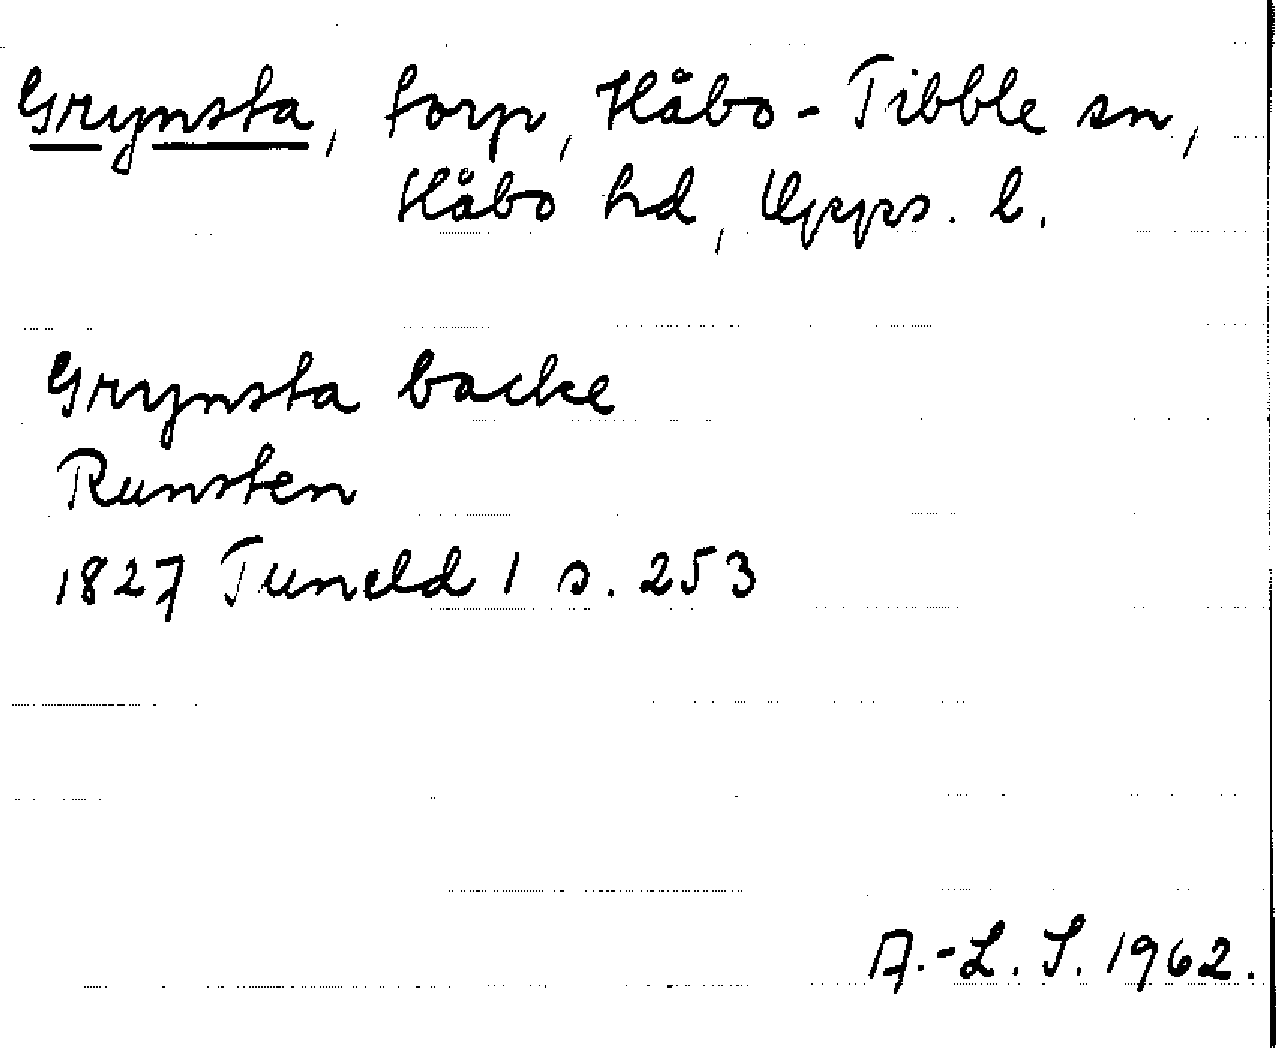 Grynsta, torp, Håbo-Tibble sn,
Håbo hd, Upps. l.
Grynsta backe
Runsten
1827 Tuneld 1 s. 253
A.-L. S. 1962.